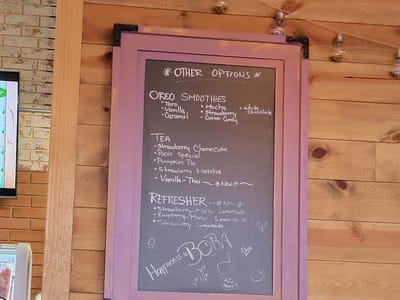 * OTHER OPTIONS *
OREO SMOOTHIES
• Taro • Mocha • White Chocolate
• Vanilla • Strawberry
• Caramel • Cotton Candy
TEA
• Strawberry Cheesecake
• Special
• Pumpkin Pie
• Strawberry Matcha
• Vanilla-Thai ~ *New* ~
REFRESHER ~ *New* ~
• Strawberry-Mango Lemonade
• Raspberry-Mango Lemonade
• Strawberry Lemonade
Happiness = BOBA